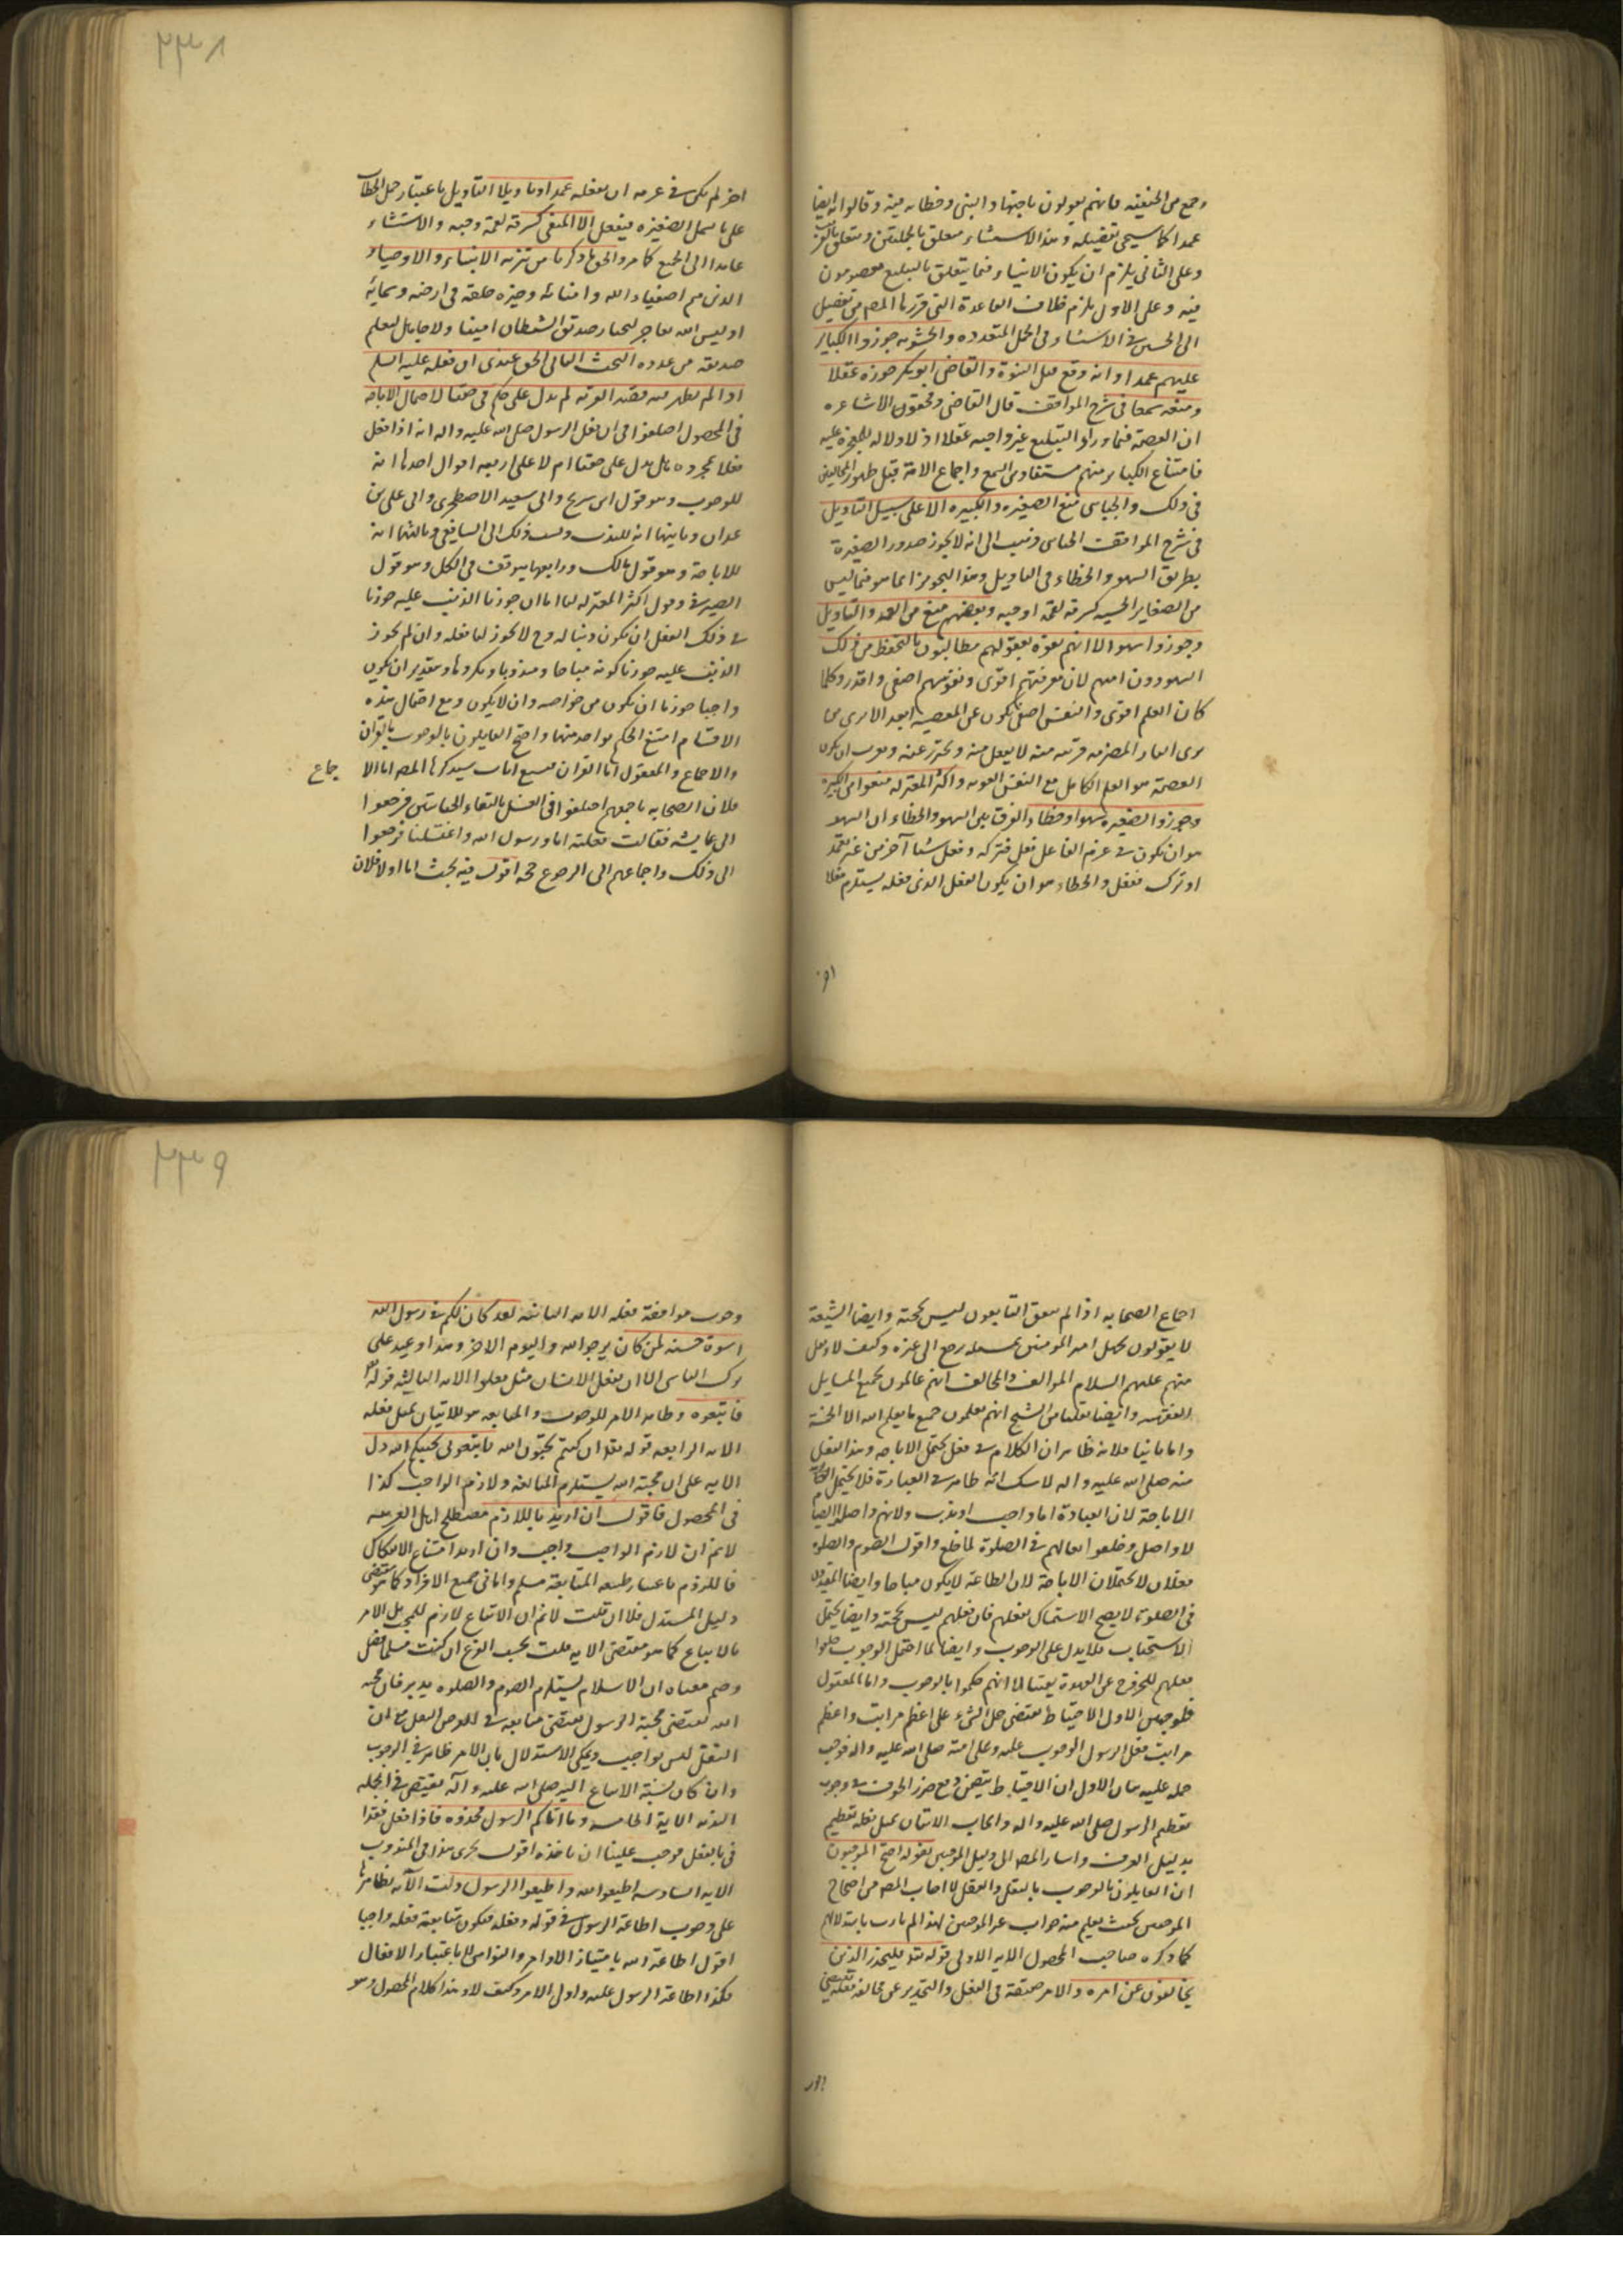 وجمع من الحنفية فانهم يقولون باجتهاد النبى وخطائه فيه وقالوا انه ايضا
عمدا كما سيجى تفصيله وهذا الاستثناء متعلق بالجملتين ومتعلق
وعلى الثانى يلزم ان يكون الانبياء فيما يتعلق بالتبليغ معصومون
فيه وعلى الاول يلزم خلاف القاعدة التى قررها المص من تفصيل
ابى الحسين فى الاستثناء فى الجمل المتعدده والحشويه جوزوا الكباير
عليهم عمدا وانه وقع قبل النبوة والقاضى ابو بكر جوزه عقلا
ومنعه سمعا فى شرح المواقف قال القاضى ومحققون الاشاعره
ان العصمة فيما وراء التبليغ غير واجبه عقلا اذ لا دلاله للمعجزة عليه
فامتناع الكباير منهم مستفاد من السمع واجماع الامة قبل ظهور المخالفين
فى ذلك والجبائى منع الصغيره والكبيره الا على سبيل التاويل
فى شرح المواقف الجبائى ذهب الى انه لا يجوز صدور الصغيرة
بطريق السهو والخطاء فى التاويل وهذا التجويز انما هو فيما ليس
من الصغاير الخسيسه كسرقة لقمة او حبه وبعضهم منع من العمد والتاويل
وجوزوا سهوا الا انهم لقوة عقولهم مطالبون بالتحفظ من ذلك
السهو دون امهم لان معرفتهم اقوى ونفوسهم اصفى واقدر وكلما
كان العلم اقوى والنفس اصفى يكون عن المعصية ابعد الا ترى من
يرى المضرة قريبه منه لا يفعل منه ويحترز عنه
العصمة هو العلم الكامل مع النفس القويه واكثر المعتزله منعوا من الكبيرة
وجوزوا الصغيره سهوا او خطاء والفرق بين السهو والخطاء ان السهو
هو ان يكون فى عزم الفاعل فعل فتركه وفعل شيئا آخر من غير تعمد
او ترك ففعل والخطاء هو ان يكون الفعل الذى فعله يستلزم فعلا
اخر
٢٣٨
اخر لم يكن فى عزمه ان يفعله عمدا وتاويلا التاويل باعتبار حمل الخطاب
على ما يحمل الصغيره فيفعل الا المنفى كسرقة لقمة وحبه والاستثناء
عايد الى الجميع كما مر والحق ما ذكرنا من تنزيه الانبياء والاوصياء
الذين هم اصفياء الله وامنائه وخيره خلقه فى ارضه وسمائه
او ليس الله بعاجز ليختار صديق الشيطان امينا ولا جاهل ليعلم
صديقه من عدوه البحث الثانى الحق عندى ان فعله عليه السلم
اذا لم يظهر منه قصد القربه لم يدل على حكم فى حقنا لاحتمال الاباحه
فى المحصول اختلفوا فى ان فعل الرسول صلى الله عليه واله انه اذا فعل
فعلا بمجرده هل يدل على حقنا ام لا على اربعه اقوال احدها انه
للوجوب وهو قول ابن سريج وابى سعيد الاصطخرى وابى على بن
خيران وثانيها انه للندب ونسب ذلك الى الشافعى وثالثها انه
للاباحة وهو قول مالك ورابعها يتوقف فى الكل وهو قول
الصيرفى وقول اكثر المعتزله لنا انا ان جوزنا الذنب عليه جوزنا
فى ذلك الفعل ان يكون ذنبا له وح لا يجوز لنا فعله وان لم نجوز
الذنب عليه جوزنا كونه مباحا ومندوبا ومكروها وبتقدير ان يكون
واجبا جوزنا ان يكون من خواصه وان لا يكون ومع احتمال هذه
الاقسام امتنع الحكم بواحد منها واحتج القايلون بالوجوب بالقران
والاجماع والمعقول اما القران فسبع ايات سيذكرها المص اما الا جماع
فلان الصحابه باجمعهم اختلفوا فى الغسل بالتقاء الختانين فرجعوا
الى عايشه فقالت فعلته انا ورسول الله واغتسلنا فرجعوا
الى ذلك واجماعهم الى الرجوع حجه اقول فيه بحث اما اولا فلان
اجماع الصحابه اذا لم يتفق التابعون ليس بحجة وايضا الشيعة
لا يقولون بجهل امير المومنين بمسئله رجع الى غيره وكيف لا ونقل
منهم عليهم السلام الموالف والمخالف انهم عالمون بجميع المسايل
وايضا نقلنا من الشيخ انهم يعلمون جميع ما يعلم الله الا الخمسة
واما ثانيا فلانه ظاهر ان الكلام فى فعل يحتمل الاباحه وهذا الفعل
منه صلى الله عليه واله لا شك انه ظاهر فى العبادة فلا يحتمل
الاباحة لان العبادة اما واجب او ندب ولانهم واصلوا الصيام
لما واصل وخلعوا نعالهم فى الصلوة لما خلع واقول الصوم والصلوه
فعلان لا يحتملان الاباحة لان الطاعة لا يكون مباحا وايضا
فى الصلوة لا يصح الاستمساك بفعلهم فان فعلهم ليس بحجة وايضا يحتمل
الاستحباب فلا يدل على الوجوب وايضا لما احتمل الوجوب جعلوا
فعلهم للخروج عن العهدة يقينا لا انهم حكموا بالوجوب واما المعقول
فلوجهين الاول الاحتياط يقتضى حمل الشىء على اعظم مراتبه واعظم
مراتب فعل الرسول الوجوب عليه وعلى امته صلى الله عليه واله فوجب
حمله عليه بيان الاول ان الاحتياط يتضمن دفع ضرر الخوف
تعظيم الرسول صلى الله عليه واله وايجاب الاتيان بمثل فعله تعظيم
بدليل العرف واشار المص الى دليل الموجبين بقوله احتج الموجبون
ان القايلون بالوجوب بالنقل والعقل
الموجبين بحيث يعلم منه جواب غير الموجبين
كما ذكره صاحب المحصول الايه الاولى قوله تعالى فليحذر الذين
يخالفون عن امره والامر حقيقة فى الفعل والتحذير عن مخالفة فعله يقتضى
وجوب
٢٣٩
وجوب موافقة فعله الايه الثانيه لقد كان لكم فى رسول الله
اسوة حسنه لمن كان يرجو الله واليوم الاخر وهذا وعيد على
ترك التاسى اى ان يفعل الانسان مثل فعله الايه الثالثه قوله تعالى
فاتبعوه وظاهر الامر للوجوب والمتابعه هو الاتيان بمثل فعله
الايه الرابعه قوله تعالى ان كنتم تحبون الله فاتبعونى يحببكم الله دل
الايه على ان محبة الله يستلزم المتابعه ولازم الواجب كذا
فى المحصول فاقول ان اريد باللازم مصطلح اهل العربيه
لانم ان لازم الواجب واجب وان اريد امتناع الانفكاك
فاللزوم باعتبار طبيعه المتابعة مسلم واما فى جميع الافراد كما هو مقتضى
دليل المستدل فلا ان قلت لانم ان الاتباع لازم للمحبه بل الامر
بالاتباع كما هو مقتضى الايه قلت بحسب الفرع ان كنت مسلما فصل
وصم معناه ان الاسلام يستلزم الصوم والصلوه يدبر فان محبه
الله يقتضى محبة الرسول يقتضى متابعه فى الفعل مع ان
النفل ليس بواجب ويمكن الاستدلال بان الامر ظاهر فى الوجوب
وان كان بنسبة الاتباع اليه صلى الله عليه وآله يقتضى فى الجمله
الندب الاية الخامسه وما اتاكم الرسول فخذوه فاذا فعل فقد اتا
نا بالفعل فوجب علينا ان ناخذه اقول يجرى هذا فى المندوب
الايه السادسه اطيعوا الله واطيعوا الرسول دلت الآيه بظاهرها
على وجوب اطاعة الرسول فى قوله وفعله فيكون متابعة فعله واجبا
اقول اطاعة الله بامتياز الاوامر والنواهى لا باعتبار الافعال
فكذا اطاعة الرسول عليه واولى الامر وكيف لا وهذا كلام المحصول وهو